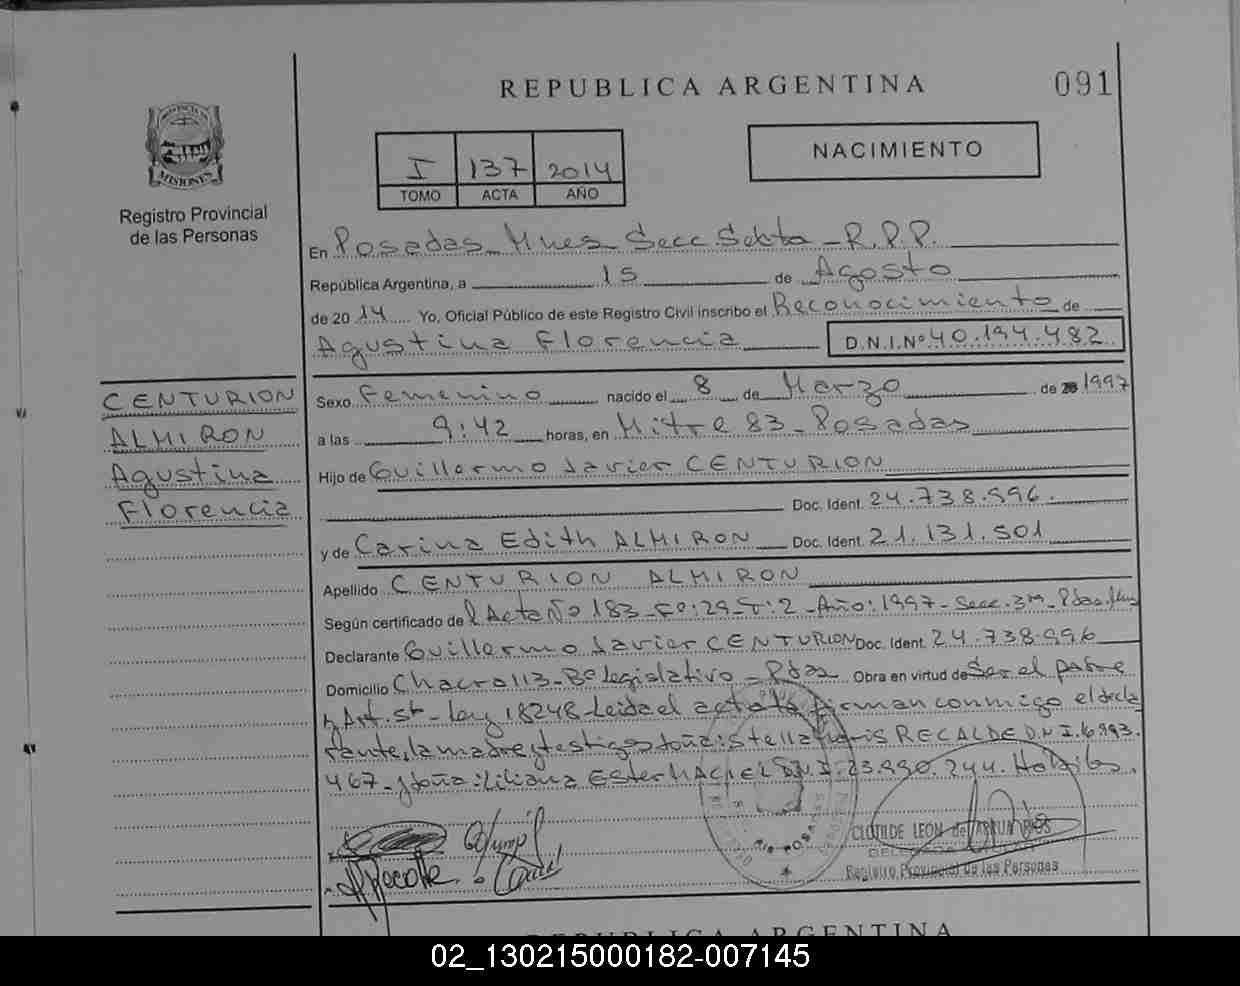 REPUBLICA ARGENTINA 091
PROVINCIA DE
MISIONES
Registro Provincial
de las Personas
I 137 2014
TOMO ACTA AÑO
NACIMIENTO
En Posadas Mnes Secc. Sexta - R.P.P.
República Argentina, a 15 de Agosto
de 2014 Yo, Oficial Público de este Registro Civil inscribo el Reconocimiento de
Agustina Florencia D.N.I.Nº 40.194.482
CENTURION
ALMIRON
Agustina
Florencia
Sexo Femenino nacido el 8 de Marzo de 1997
a las 9:42 horas, en Mitre 83 - Posadas
Hijo de Guillermo Javier CENTURION
Doc. Ident. 24.738.996.
y de Carina Edith ALMIRON Doc. Ident. 21.131.501
Apellido CENTURION ALMIRON
Según certificado de l Acta Nº 183 - Fº: 29 - T: 2 - Año: 1997 - Secc. 3ra - Pdas. Mnes
Declarante Guillermo Javier CENTURION Doc. Ident. 24.738.996
Domicilio Chacra 113 - Bº Legislativo - Pdas Obra en virtud de Ser el padre
y Art. 5to - Ley 18248 - Leida el acta la firman conmigo el decla
rante, la madre y testigos doña: Stella Maris RECALDE D.N.I. 6.993.
467 - y doña: Liliana Ester MACIEL D.N.I. 23.990.244. Hábiles.
CLOTILDE LEON de
Registro Provincial de las Personas
REPUBLICA ARGENTINA
02_130215000182-007145